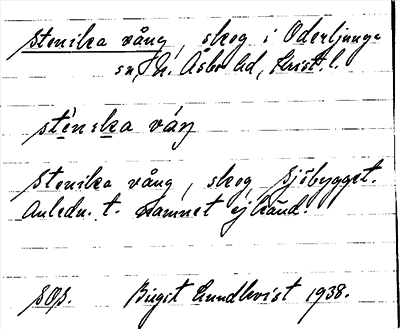 Stenska vång, skog i Oderljunga
sn, N. Åsbo hd, Krist. l.
sténska váŋ
Stenska vång, skog, Sjöbygget.
Anledn. t. namnet ej känd.
SOS. Birgit Lundkvist 1938.